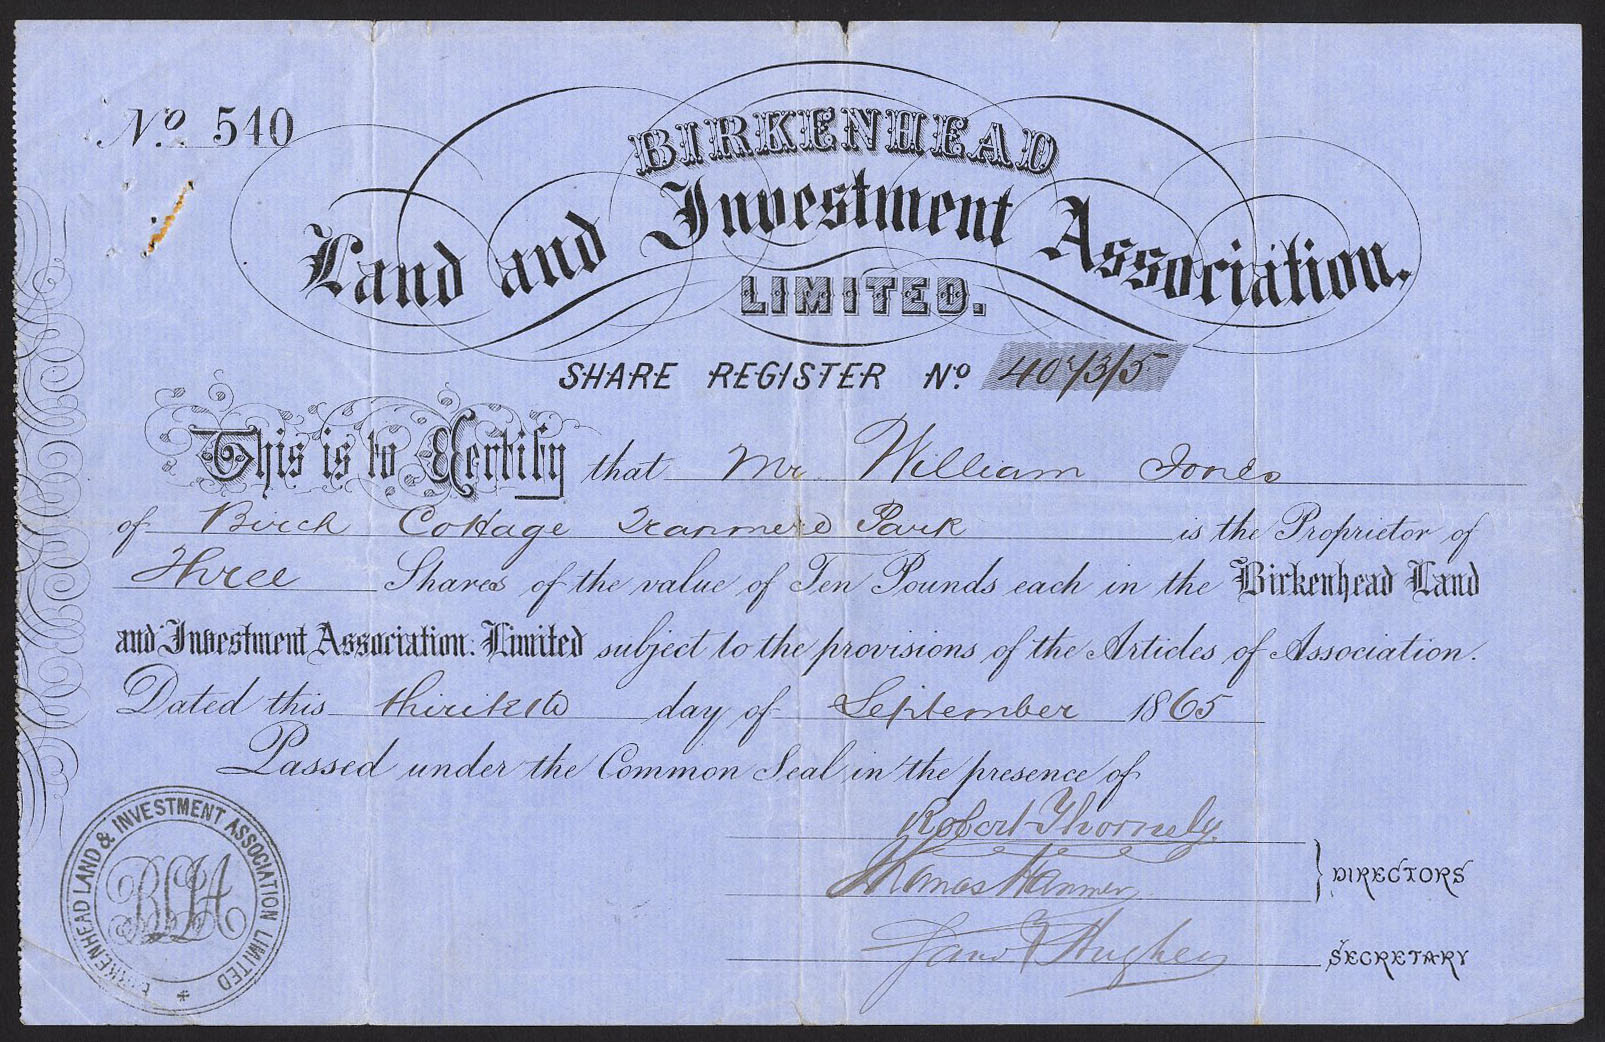 No. 540
BIRKENHEAD
Land and Investment Association.
LIMITED.
SHARE REGISTER No
This is to Certify that Mr William Jones
of Birch Cottage Tranmere Park is the Proprietor of
Three Shares of the value of Ten Pounds each in the Birkenhead Land
and Investment Association: Limited subject to the provisions of the Articles of Association.
Dated this day of September 1865
Passed under the Common Seal in the presence of
Robert Thornely
Thomas Hanmer
DIRECTORS
Hughes
SECRETARY
BIRKENHEAD LAND & INVESTMENT ASSOCIATION LIMITED
BLIA